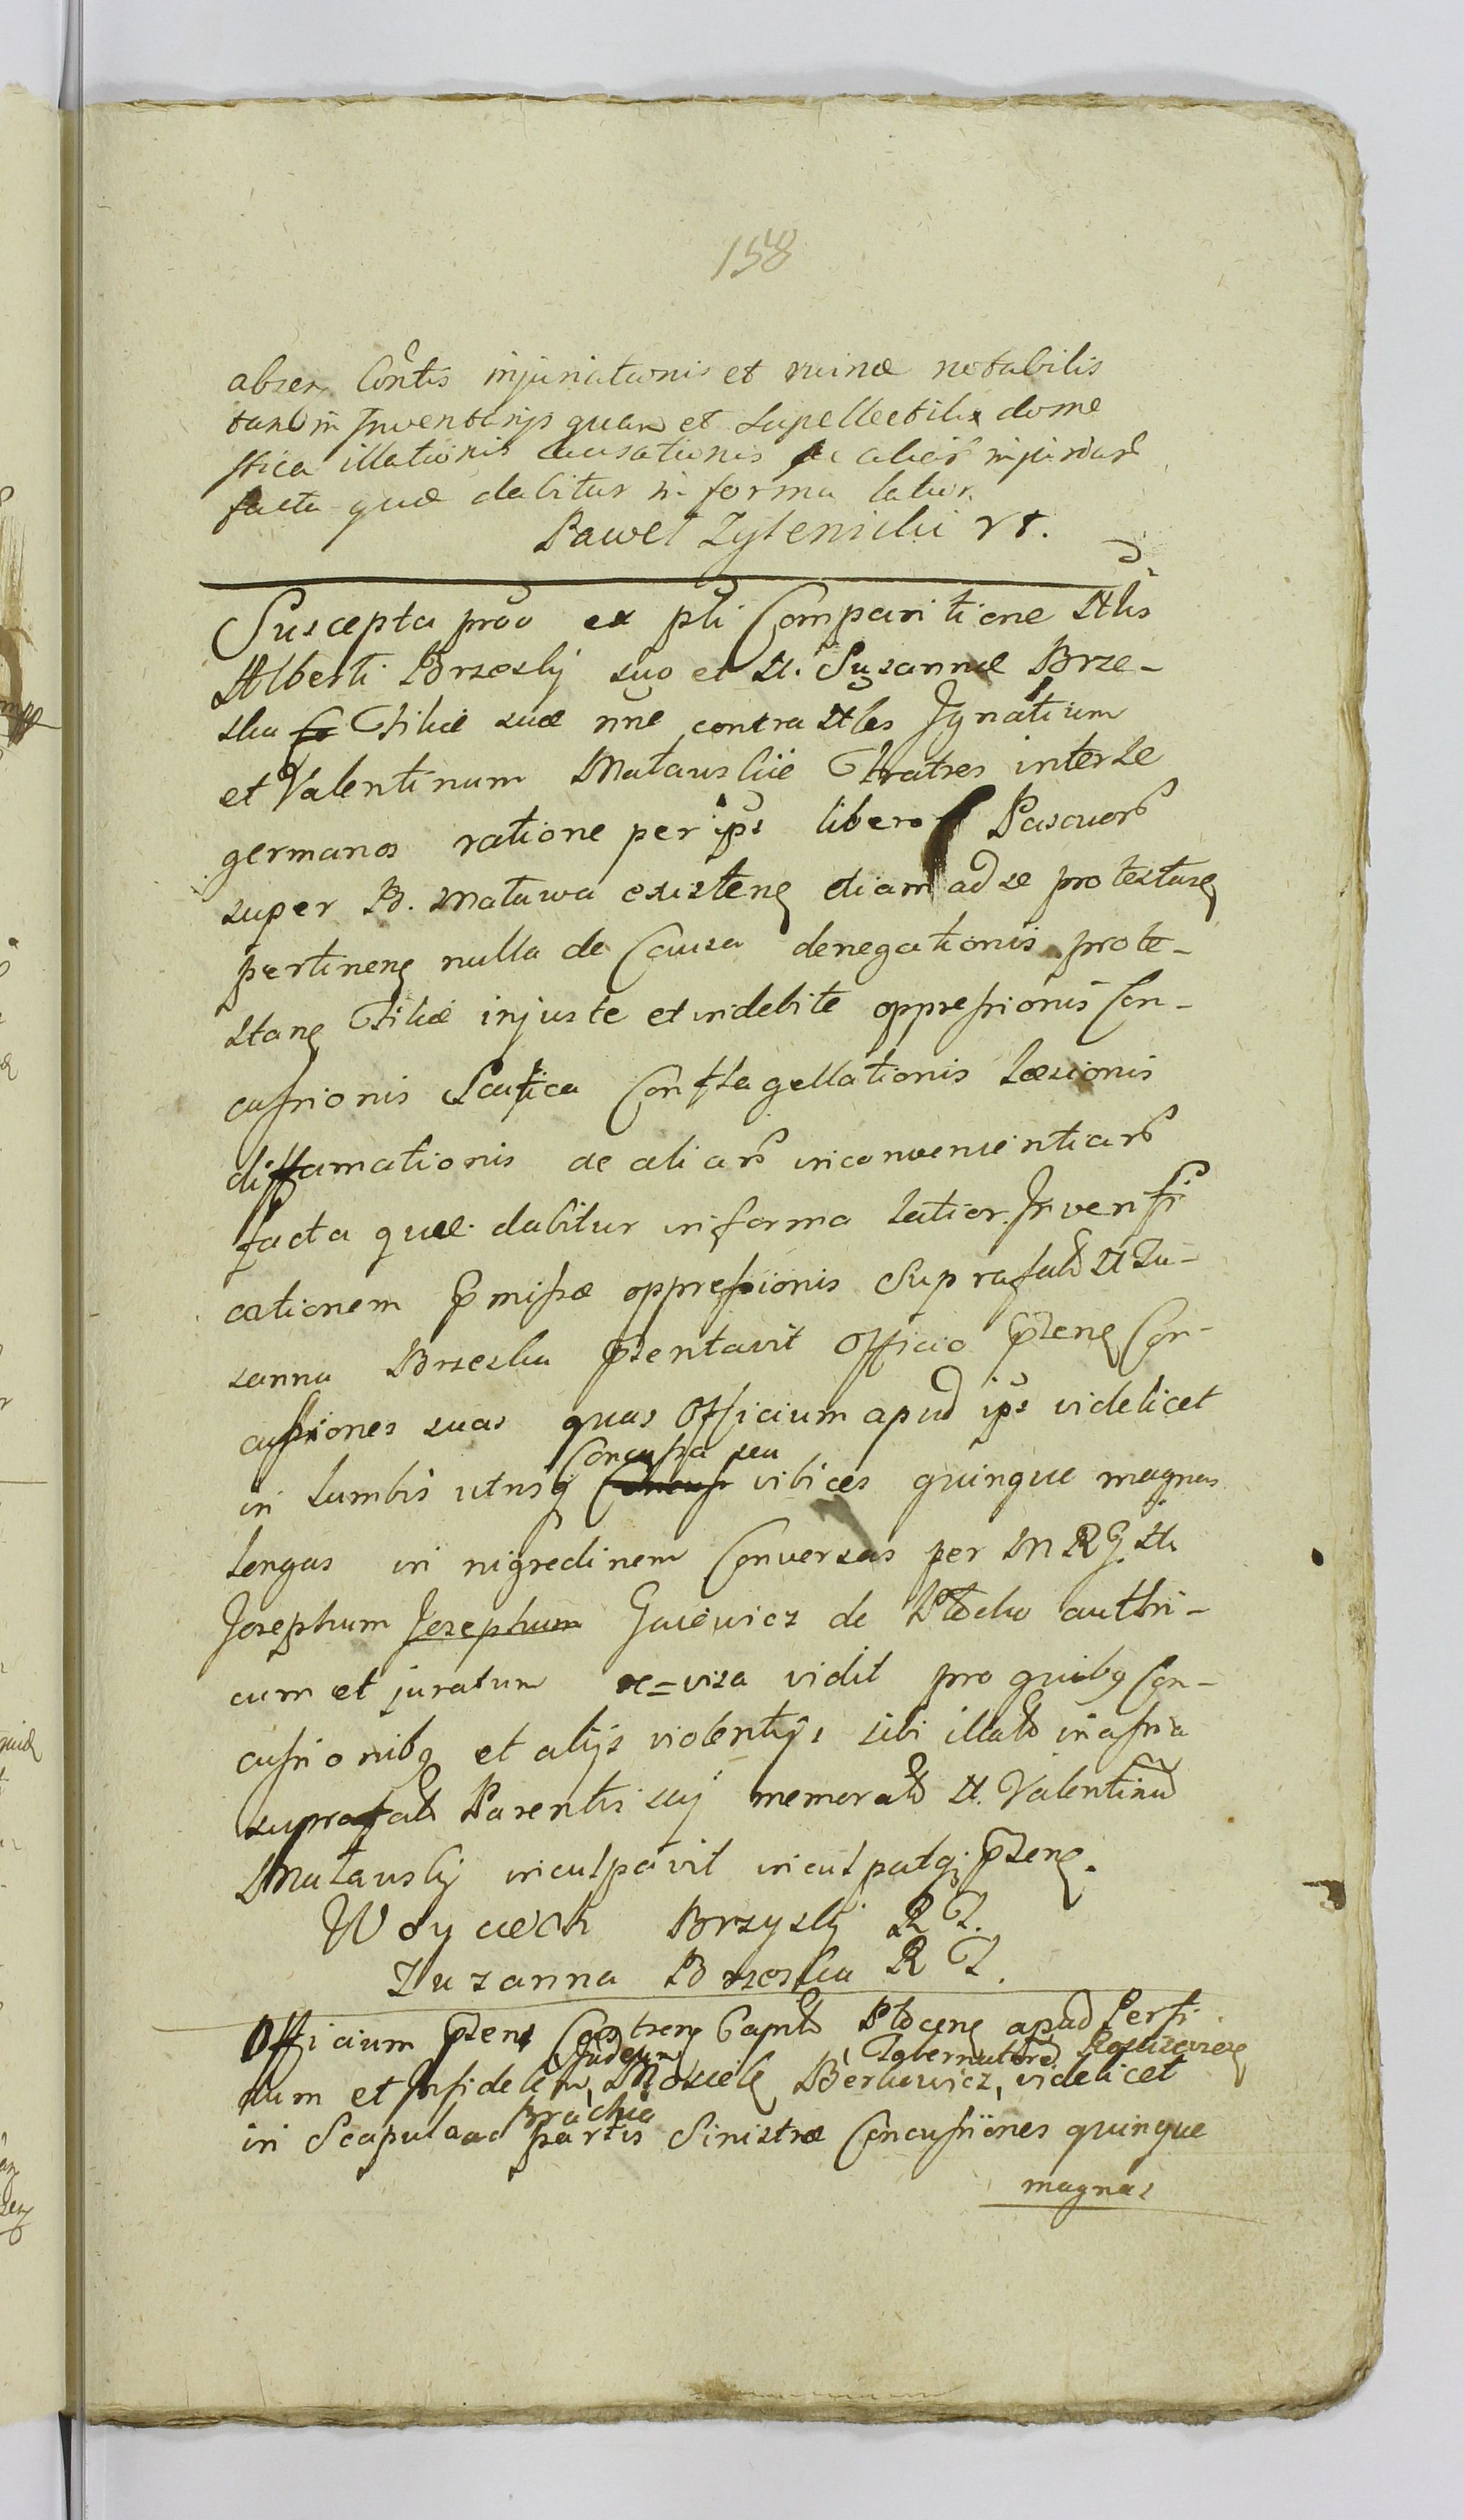 158
absen Contis injuriationis et ruinæ notabilis
tam in Inventarijs quam et Supellectilia dome
stica illationis causationis ac aliar injuriar
facta quæ dabitur in forma latior.
Paweł Zytenicki rt.
Suscepta prõõ ex pti Comparitione Nlis
Alberti Brzesky suo et N. Suzannæ Brze-
ska Filiæ suæ nne contra Nles Ignatium
et Valentinum Matauskie Fratres inter se
germanos ratione per ips libero Pascuor
super B. Matawa existen etiam ad se protestan
pertinen nulla de Causa denegationis prote-
stan Filiæ injuste et indebite oppressionis Con-
cussionis Scutica Conflagellationis Læsionis
diffamationis ac aliar inconvenientiar
facta quæ dabitur in forma latior. In verifi
cationem pmissæ oppressionis Suprafat N Zu-
sanna Brzeska psentavit Officio psen Con-
cussiones suas quas Officium apud ips videlicet
in Lumbis utrusq Concussa seu vibices quinque magnas
longas in nigredinem Conversas per M R G. N.
Josephum Josephum Gaiewicz de Plocko authri-
cum et juratum re=visa vidit pro quibq Con-
cussionibq et alijs violentijs sibi illat in assria
suprafat Parentis sui memorat N. Valentinũ
Matausky inculpavit inculpatq psen.
Woyciech Brzysky R T.
Zuzanna Brzoska R T.
Officium psens Castren Capit Plocen apud Perfi
dum et Infidelem Judeum Moszek Berkowicz, Tabernatore Roscizewien videlicet
in Scapula ac Brachia partis Sinistræ Concussiones quinque
magnas